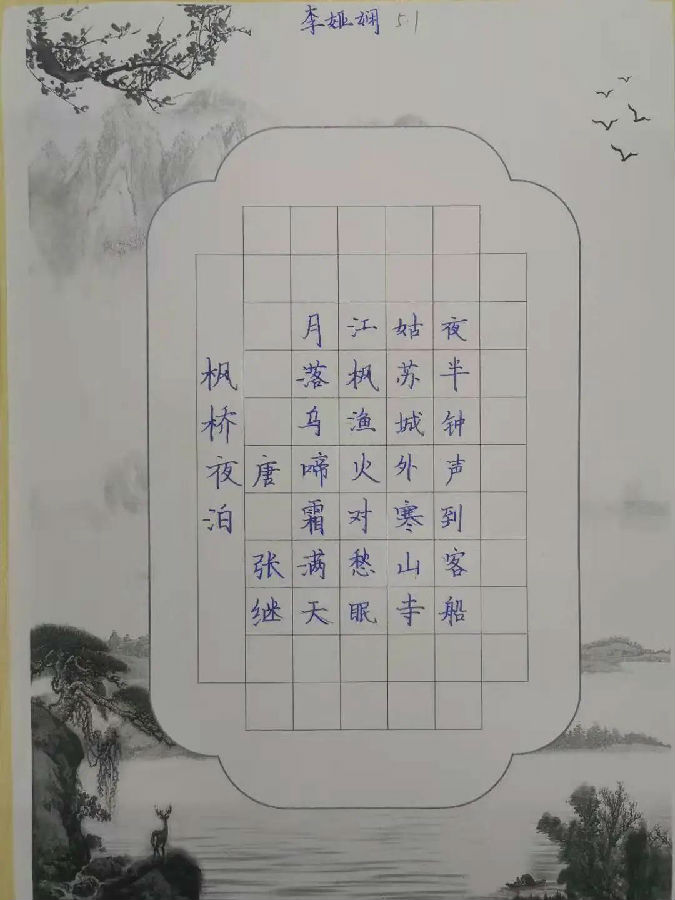 李娅娴 5.1
枫桥夜泊
唐 张继
月落乌啼霜满天
江枫渔火对愁眠
姑苏城外寒山寺
夜半钟声到客船